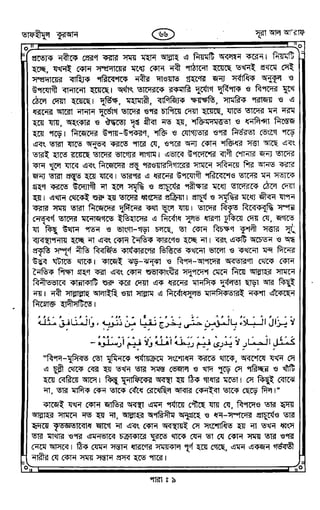 তাফহীমুল কুরআন
৬৬
সূরা আল আ'রাফ
প্রত্যেক নবীকে প্রেরণ করার সময় মহান আল্লাহ এ নিয়মটি অবলম্বন করেন। নিয়মটি
হচ্ছে, যখনই কোন সম্প্রদায়ের মধ্যে কোন নবী পাঠানো হয়েছে তখনই প্রথমে সেই
সম্প্রদায়ের বাহ্যিক পরিবেশকে নবীর দাওয়াত গ্রহণের জন্য সর্বাধিক অনুকূল ও
উপযোগী বানানো হয়েছে। অর্থাৎ তাদেরকে রকমারি দুর্যোগ দুর্বিপাক ও বিপদের মুখে
ঠেলে দেয়া হয়েছে। দুর্ভিক্ষ, মহামারী, বাণিজ্যিক ক্ষয়ক্ষতি, সামরিক পরাজয় ও এ
ধরনের আরো নানান দুর্ভোগ তাদের ওপর চাপিয়ে দেয়া হয়েছে, যাতে তাদের মন নরম
হয়ে যায়, অহংকার ও ঔদ্ধত্যে দৃপ্ত গ্রীবা নত হয়, শক্তিমদমত্ততা ও ধনলিপ্সা নিস্তেজ
হয়ে পড়ে। নিজেদের উপায়-উপকরণ, শক্তি ও যোগ্যতার ওপর নির্ভরতা ভেংগে পড়ে
এবং তারা যাতে অনুভব করতে পারে যে, ওপরে অন্য কোন শক্তিধর সত্তা আছে এবং
তারই হাতে রয়েছে তাদের ভাগ্যের লাগাম। এভাবে উপদেশের বাণী শোনার জন্য তাদের
কান খুলে যাবে এবং নিজেদের প্রভু পরওয়ারদিগারের সামনে সবিনয়ে শির আনত করার
জন্য তারা প্রস্তুত হয়ে যাবে। তারপর এ ধরনের উপযোগী পরিবেশেও তাদের মন সত্যকে
গ্রহণ করতে উদ্যোগী না হলে সমৃদ্ধি ও প্রাচুর্যের পরীক্ষার মধ্যে তাদেরকে ঠেলে দেয়া
হয়। এখান থেকেই শুরু হয় তাদের ধ্বংসের প্রক্রিয়া। প্রাচুর্য ও সমৃদ্ধির মধ্যে জীবন যাপন
করার সময় তারা নিজেদের দুর্দিনের কথা ভুলে যায়। তাদের বিকৃত বিবেকবুদ্ধি সম্পন্ন
নেতৃবর্গ তাদের মনোজগতে ইতিহাসের এ নির্বোধ সুলভ ধারণা ঢুকিয়ে দেয় যে, জগতে
যা কিছু উত্থান পতন ও ভাংগা-গড়া চলছে, তা কোন বিচক্ষণ কুশলী সত্তার সুষ্ঠু
ব্যবস্থাপনায় হচ্ছে না এবং কোন নৈতিক কারণেও হচ্ছে না। বরং একটি অচেতন ও অন্ধ
প্রকৃতি সম্পূর্ণ নীতি বিবর্জিত কার্যকারণের ভিত্তিতে কখনো ভালো ও কখনো মন্দ দিনের
উদ্ভব ঘটাতে থাকে। কাজেই ঝড়-ঝনঝা ও বিপদ-আপদের অবতারণা থেকে কোন
নৈতিক শিক্ষা গ্রহণ করা এবং কোন শুভাকাংখীর সদুপদেশ মেনে নিয়ে আল্লাহর সামনে
বিনীতভাবে কান্নাকাটি শুরু করে দেয়া এক ধরনের মানসিক দুর্বলতা ছাড়া আর কিছুই
নয়। নবী সাল্লাল্লাহু আলাইহি ওয়া সাল্লাম এ নির্বোধসুলভ মানসিকতারই নকশা এঁকেছেন
নিম্নোক্ত হাদীসটিতেঃ
لَا يَزَالُ الْبَلَاءُ بِالْمُؤْمِنِ حَتَّى يَخْرُجَ نَقِيًّا مِنْ ذُنُوبِهِ، وَالْمُنَافِقُ مَثَلُهُ
كَمَثَلِ الْحِمَارِ لَا يَدْرِي فِيمَ رَبَطَهُ أَهْلُهُ وَلَا فِيمَ أَرْسَلُوهُ -
"বিপদ-মুসিবত তো মুমিনকে পর্যায়ক্রমে সংশোধন করতে থাকে, অবশেষে যখন সে
এ চুল্লী থেকে বের হয় তখন তার সমস্ত ভেজাল ও খাদ পুড়ে সে পরিচ্ছন্ন ও খাঁটি
হয়ে বেরিয়ে আসে। কিন্তু মুনাফিকের অবস্থা হয় ঠিক গাধার মতো। সে কিছুই বোঝে
না, তার মালিক কেন তাকে বেঁধে রেখেছিল আবার কেনইবা তাকে ছেড়ে দিল।"
কাজেই যখন কোন জাতির অবস্থা এমন পর্যায়ে পৌঁছে যায় যে, বিপদেও তার হৃদয়
আল্লাহর সামনে নত হয় না, আল্লাহর অপরিসীম অনুগ্রহে ও ধন-সম্পদের প্রাচুর্যেও তার
হৃদয়ে কৃতজ্ঞতাবোধ জাগে না এবং কোন অবস্থায়ই সে সংশোধিত হয় না তখন ধ্বংস
তার মাথার ওপর এমনভাবে চক্রাকারে ঘুরতে থাকে যেন তা যে কোন সময় তার ওপর
নেমে আসবে। ঠিক যেমন সন্তান ধারণের সময়কাল পূর্ণ হয়ে গেছে, এমন একজন গর্ভবতী
নারীর যে কোন সময় সন্তান প্রসব হতে পারে।
পারা ঃ ৯